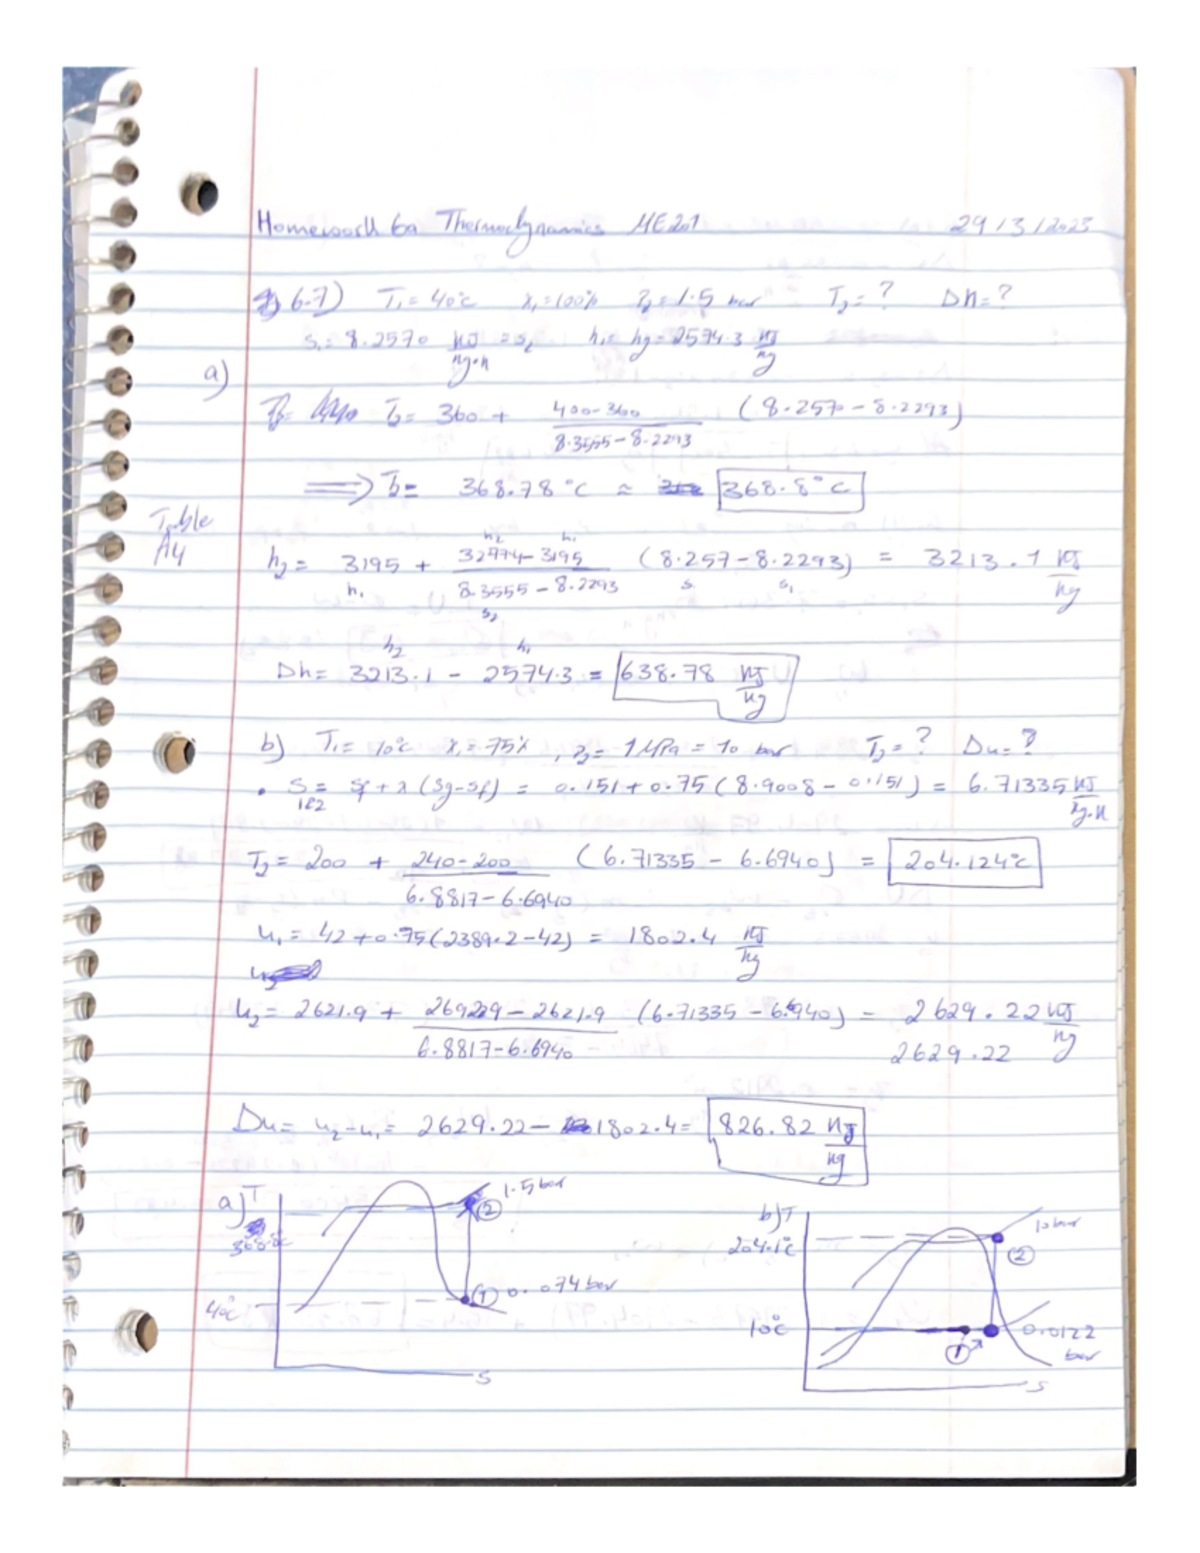 Homework 6a Thermodynamics ME201 29/3/2023
6.7) T₁= 40°C x₁=100% P₂=1.5 bar T₂=? Δh=?
s₁= 8.2570 kJ/kg·K = s₂ h₁= hg=2574.3 kJ/kg
a)
T₂= 360 + (400-360)/(8.3555-8.2293) (8.257-8.2293)
⟹ T₂= 368.78°C ≈ 368.8°C
Table A4
h₂= 3195 + (3277.4-3195)/(8.3555-8.2293) (8.257-8.2293) = 3213.1 kJ/kg
h₂ h₁
h₁ s₂ s s₁
h₂ h₁
Δh= 3213.1 - 2574.3 = 638.78 kJ/kg
b) T₁= 10°C x₁=75% , P₂= 1MPa = 10 bar T₂=? Δu=?
• s 1&2 = sf+x(sg-sf) = 0.151+0.75(8.9008-0.151) = 6.71335 kJ/kg·K
T₂= 200 + (240-200)/(6.8817-6.6940) (6.71335-6.6940) = 204.124°C
u₁= 42+0.75(2389.2-42) = 1802.4 kJ/kg
u₂= 2621.9 + (2692.9-2621.9)/(6.8817-6.6940) (6.71335-6.6940) = 2629.22 kJ/kg
2629.22
Δu= u₂-u₁= 2629.22- 1802.4= 826.82 kJ/kg
a) T 1.5 bar b) T 10 bar
368.8°C ② 204.1°C ②
40°C ① 0.074 bar 10°C ① 0.0122 bar
s s